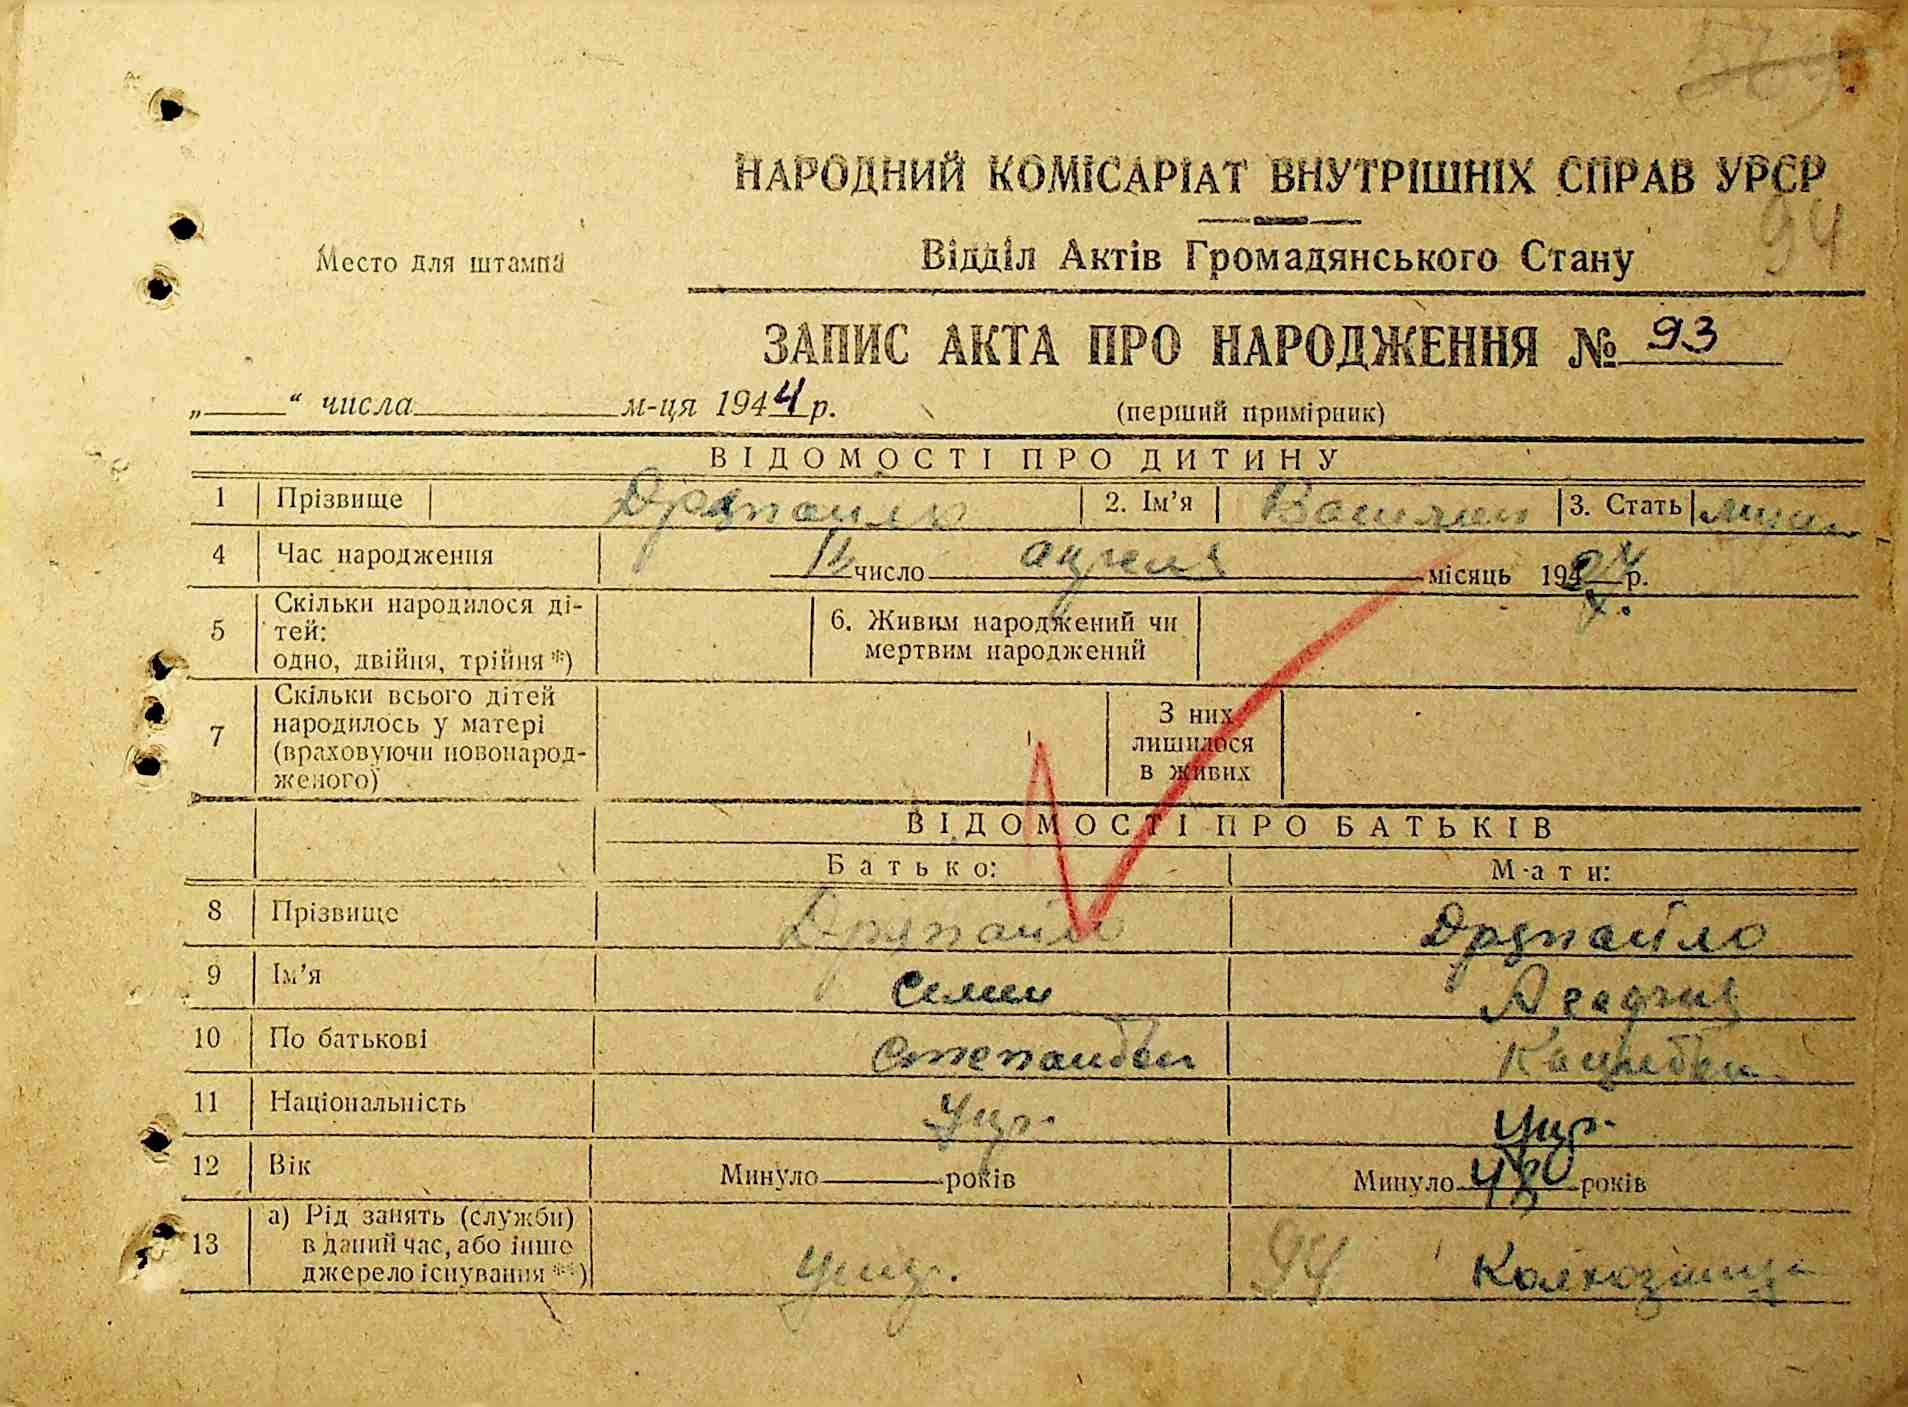 94
НАРОДНИЙ КОМІСАРІАТ ВНУТРІШНІХ СПРАВ УРСР
Место для штампа
Відділ Актів Громадянського Стану
ЗАПИС АКТА ПРО НАРОДЖЕННЯ № 93
„____“ числа________ м-ця 1944 р.
(перший примірник)
ВІДОМОСТІ ПРО ДИТИНУ
1 Прізвище Дряпайло 2. Ім’я 3. Стать
4 Час народження число апреля місяць 19 р.
5 Скільки народилося ді-
тей:
одно, двійня, трійня *)
6. Живим народжений чи
мертвим народжений
7 Скільки всього дітей
народилось у матері
(враховуючи новонарод-
женого)
З них
лишилося
в живих
ВІДОМОСТІ ПРО БАТЬКІВ
Батько: Мати:
8 Прізвище Дряпайло Дряпайло
9 Ім’я Семен
10 По батькові
11 Національність Укр. Укр.
12 Вік Минуло____років Минуло 48 років
13 а) Рід занять (служби)
в даний час, або інше
джерело існування **)
94 Колхозница